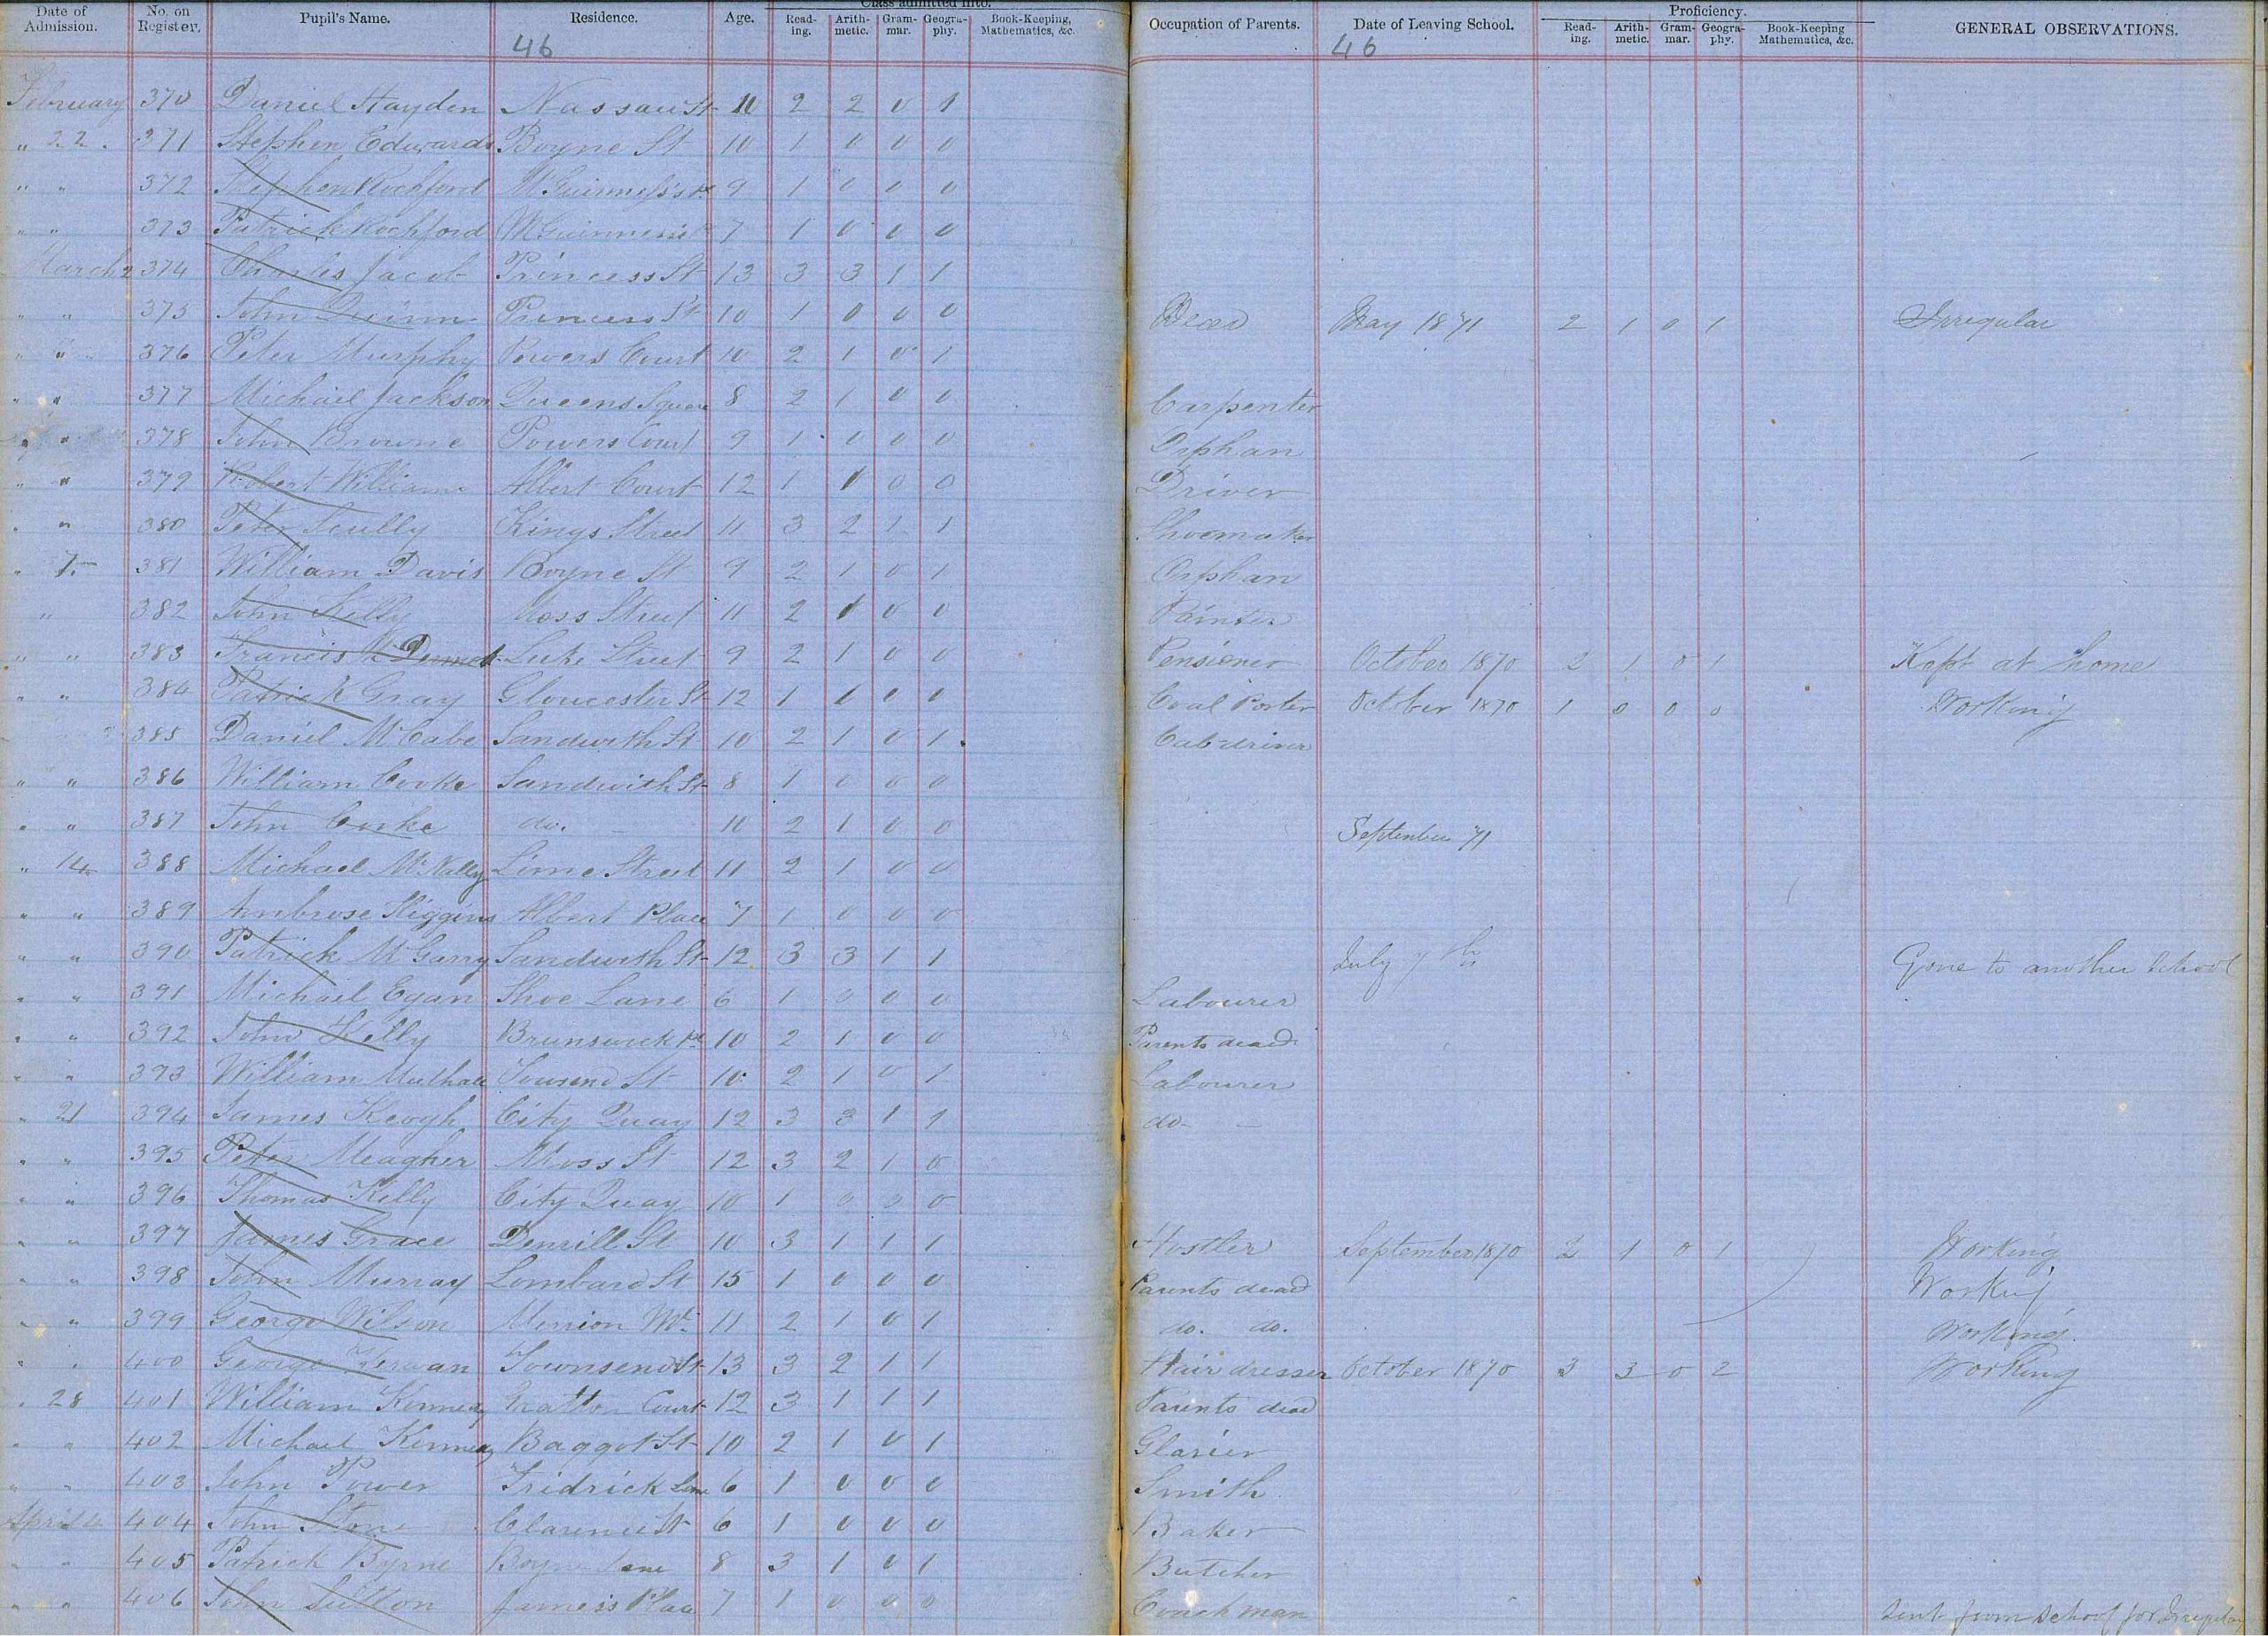 Date of Admission. No. on Register. Pupil's Name. Residence. Age. Class admitted into. Read-ing. Arith-metic. Gram-mar. Geogra-phy. Book-Keeping, Mathematics, &c. Occupation of Parents. Date of Leaving School. Proficiency. Read-ing. Arith-metic. Gram-mar. Geogra-phy. Book-Keeping Mathematics, &c. GENERAL OBSERVATIONS.
46 46
February 370 Daniel Hayden Nassau St 10 2 2 0 1
" 22. 371 Stephen Edwards Boyne St 10 1 0 0 0
" " 372 Stephen Rochford McGuinness's 9 1 0 0 0
" " 373 Patrick Rochford McGuinness's 7 1 0 0 0
March 2 374 Charles Jacob Princess St 13 3 3 1 1
" " 375 John Quinn Princess St 10 1 0 0 0 Dead May 1871 2 1 0 1 Irregular
" " 376 Peter Murphy Powers Court 10 2 1 0 1
" " 377 Michael Jackson Queens Square 8 2 1 0 0 Carpenter
" " 378 John Browne Powers Court 9 1 0 0 0 Orphan
" " 379 Robert Williams Albert Court 12 1 1 0 0 Driver
" " 380 Peter Scully Kings Street 11 3 2 1 1 Shoemaker
" 7 381 William Davis Boyne St 9 2 1 0 1 Orphan
" 382 John Kelly Moss Street 11 2 1 0 0 Painter
" " 383 Francis McDermot Luke Street 9 2 1 0 0 Pensioner October 1870 2 1 0 1 Kept at home
" " 384 Patrick Gray Gloucester St 12 1 1 0 0 Coal Porter October 1870 1 0 0 0 Working
385 Daniel McCabe Sandwith St 10 2 1 0 1 Cab driver
" " 386 William Cooke Sandwith St 8 1 0 0 0
" " 387 John Cooke do. 10 2 1 0 0 September 71
" 14 388 Michael McNally Lime Street 11 2 1 0 0
" " 389 Ambrose Higgins Albert Place 7 1 0 0 0
" " 390 Patrick McGarry Sandwith St 12 3 3 1 1 July 7th Gone to another School
" " 391 Michael Egan Shoe Lane 6 1 0 0 0 Labourer
" " 392 John Kelly Brunswick 10 2 1 0 0 Parents dead
" " 393 William Mulhall Townsend St 10 2 1 0 1 Labourer
" 21 394 James Keogh City Quay 12 3 3 1 1 do
" " 395 Peter Meagher Moss St 12 3 2 1 0
" " 396 Thomas Kelly City Quay 10 1 0 0 0
" " 397 James Grace Denzille St 10 3 1 1 1 Hostler September 1870 2 1 0 1 Working
" " 398 John Murray Lombard St 15 1 0 0 0 Parents dead Working
" " 399 George Wilson Merrion 11 2 1 0 1 do. do. Working
" " 400 George Kerwan Townsend St 13 3 2 1 1 Hair dresser October 1870 3 3 0 2 Working
" 28 401 William Kennedy Gratton Court 12 3 1 1 1 Parents dead
" " 402 Michael Kennedy Baggot St 10 2 1 0 1 Glazier
" " 403 John Power Fridrick Lane 6 1 0 0 0 Smith
April 4 404 John Stone Clarence St 6 1 0 0 0 Baker
" " 405 Patrick Byrne Boyne Lane 8 3 1 0 1 Butcher
" " 406 John Sutton James's Place 7 1 0 0 0 Coachman Sent from School for Irregular